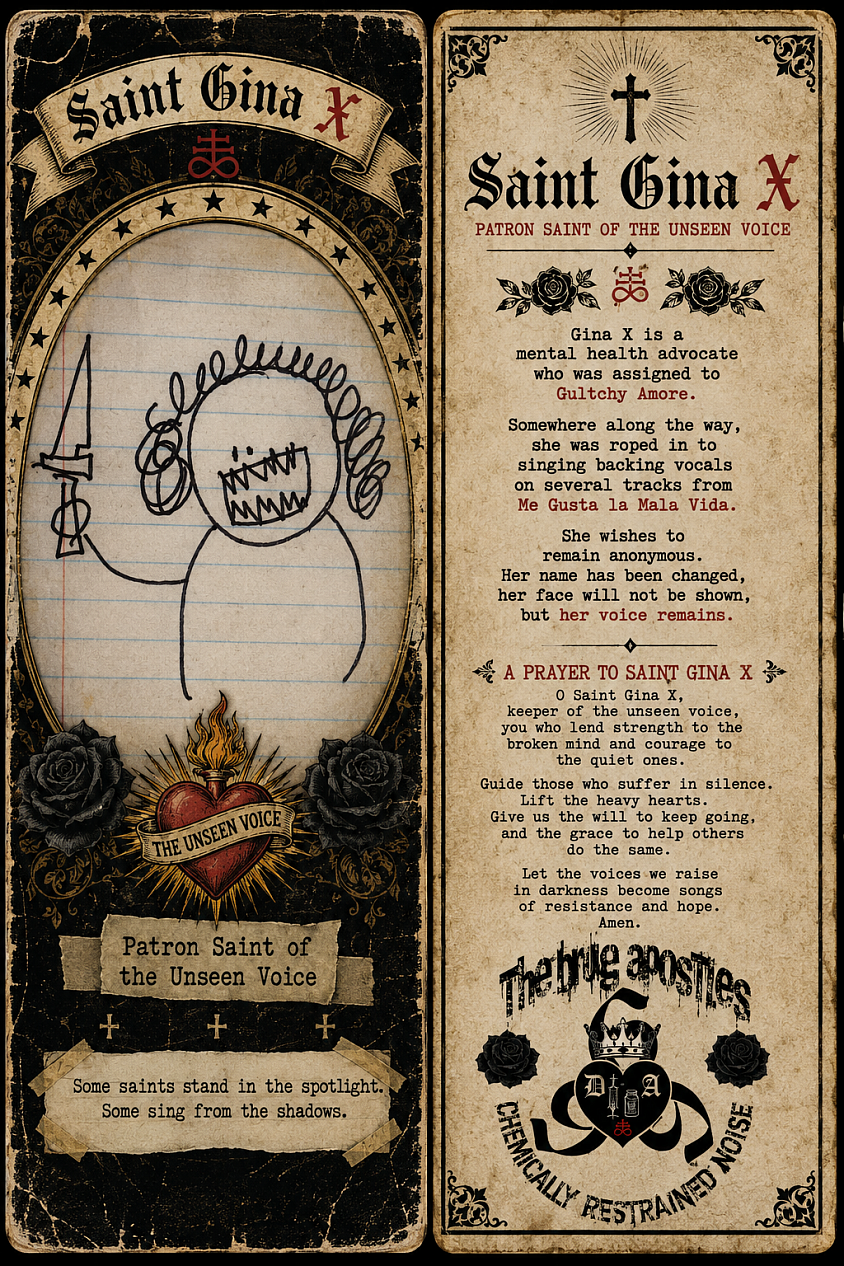 Saint Gina X
THE UNSEEN VOICE
Patron Saint of
the Unseen Voice
Some saints stand in the spotlight.
Some sing from the shadows.
Saint Gina X
PATRON SAINT OF THE UNSEEN VOICE
Gina X is a
mental health advocate
who was assigned to
Gultchy Amore.
Somewhere along the way,
she was roped in to
singing backing vocals
on several tracks from
Me Gusta la Mala Vida.
She wishes to
remain anonymous.
Her name has been changed,
her face will not be shown,
but her voice remains.
A PRAYER TO SAINT GINA X
O Saint Gina X,
keeper of the unseen voice,
you who lend strength to the
broken mind and courage to
the quiet ones.
Guide those who suffer in silence.
Lift the heavy hearts.
Give us the will to keep going,
and the grace to help others
do the same.
Let the voices we raise
in darkness become songs
of resistance and hope.
Amen.
The Drug Apostles
D A
CHEMICALLY RESTRAINED NOISE